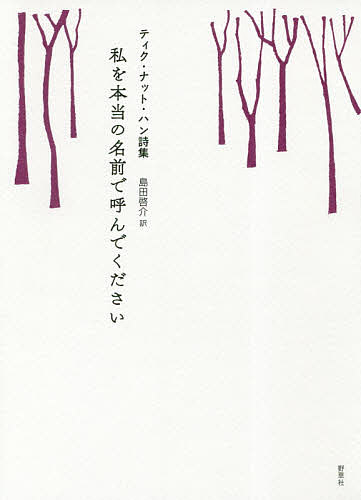 ティク・ナット・ハン詩集
私を本当の名前で呼んでください
島田啓介 訳
野草社